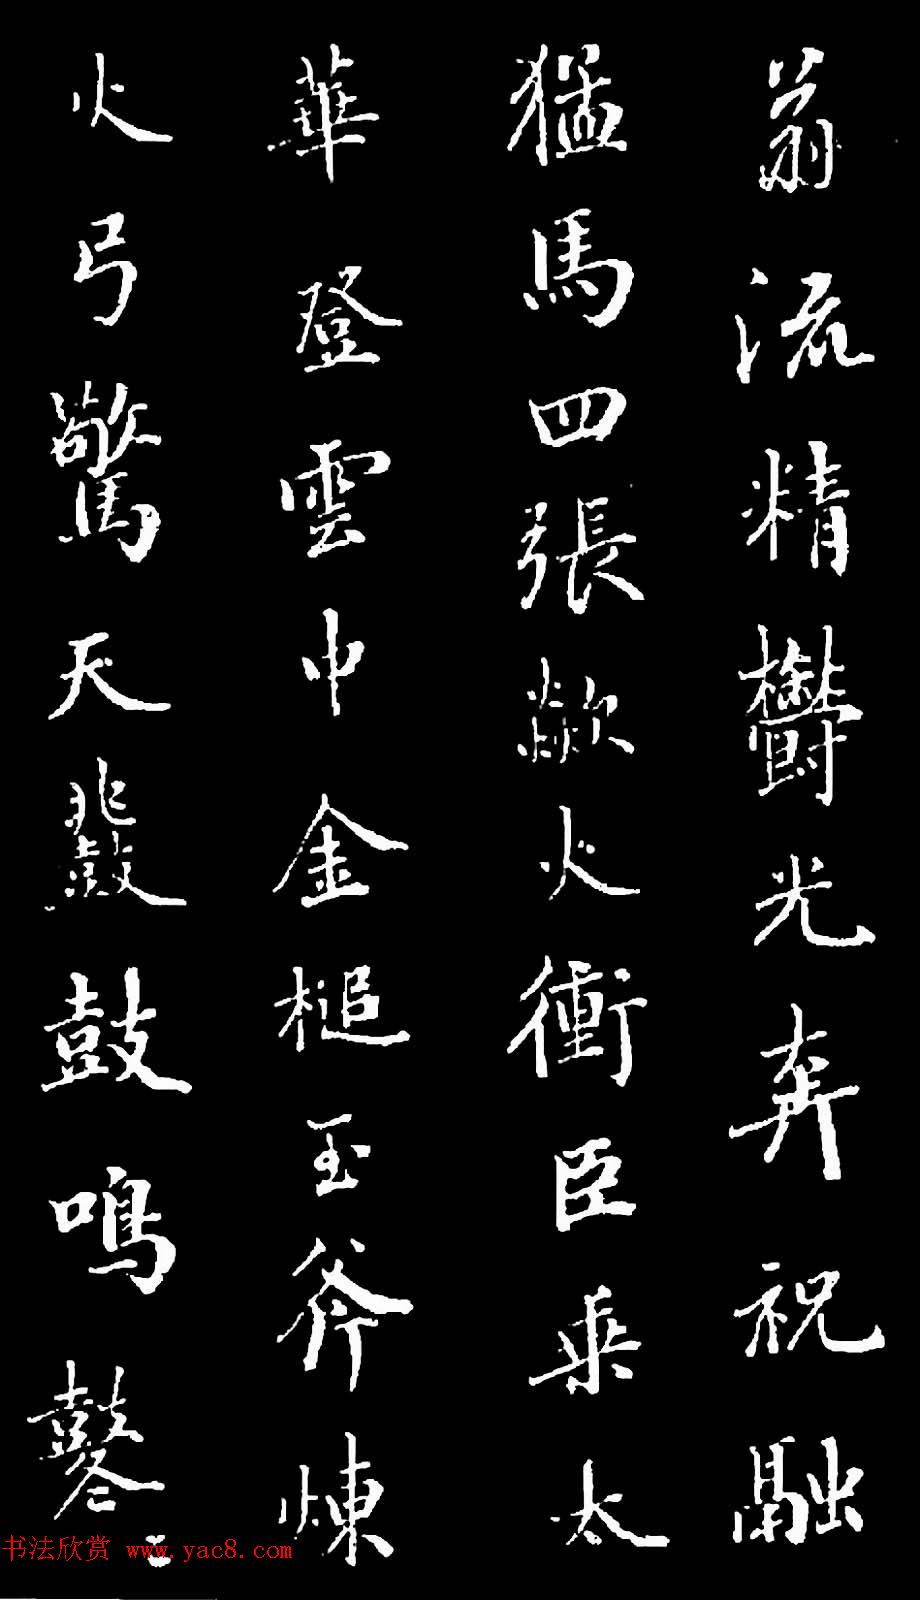 翁流精鬱光奔祝融
猛馬四張歘火衝臣乗太
華登雲中金槌玉斧煉
火弓驚天鼓鳴鼕〻
书法欣赏 www.yac8.com